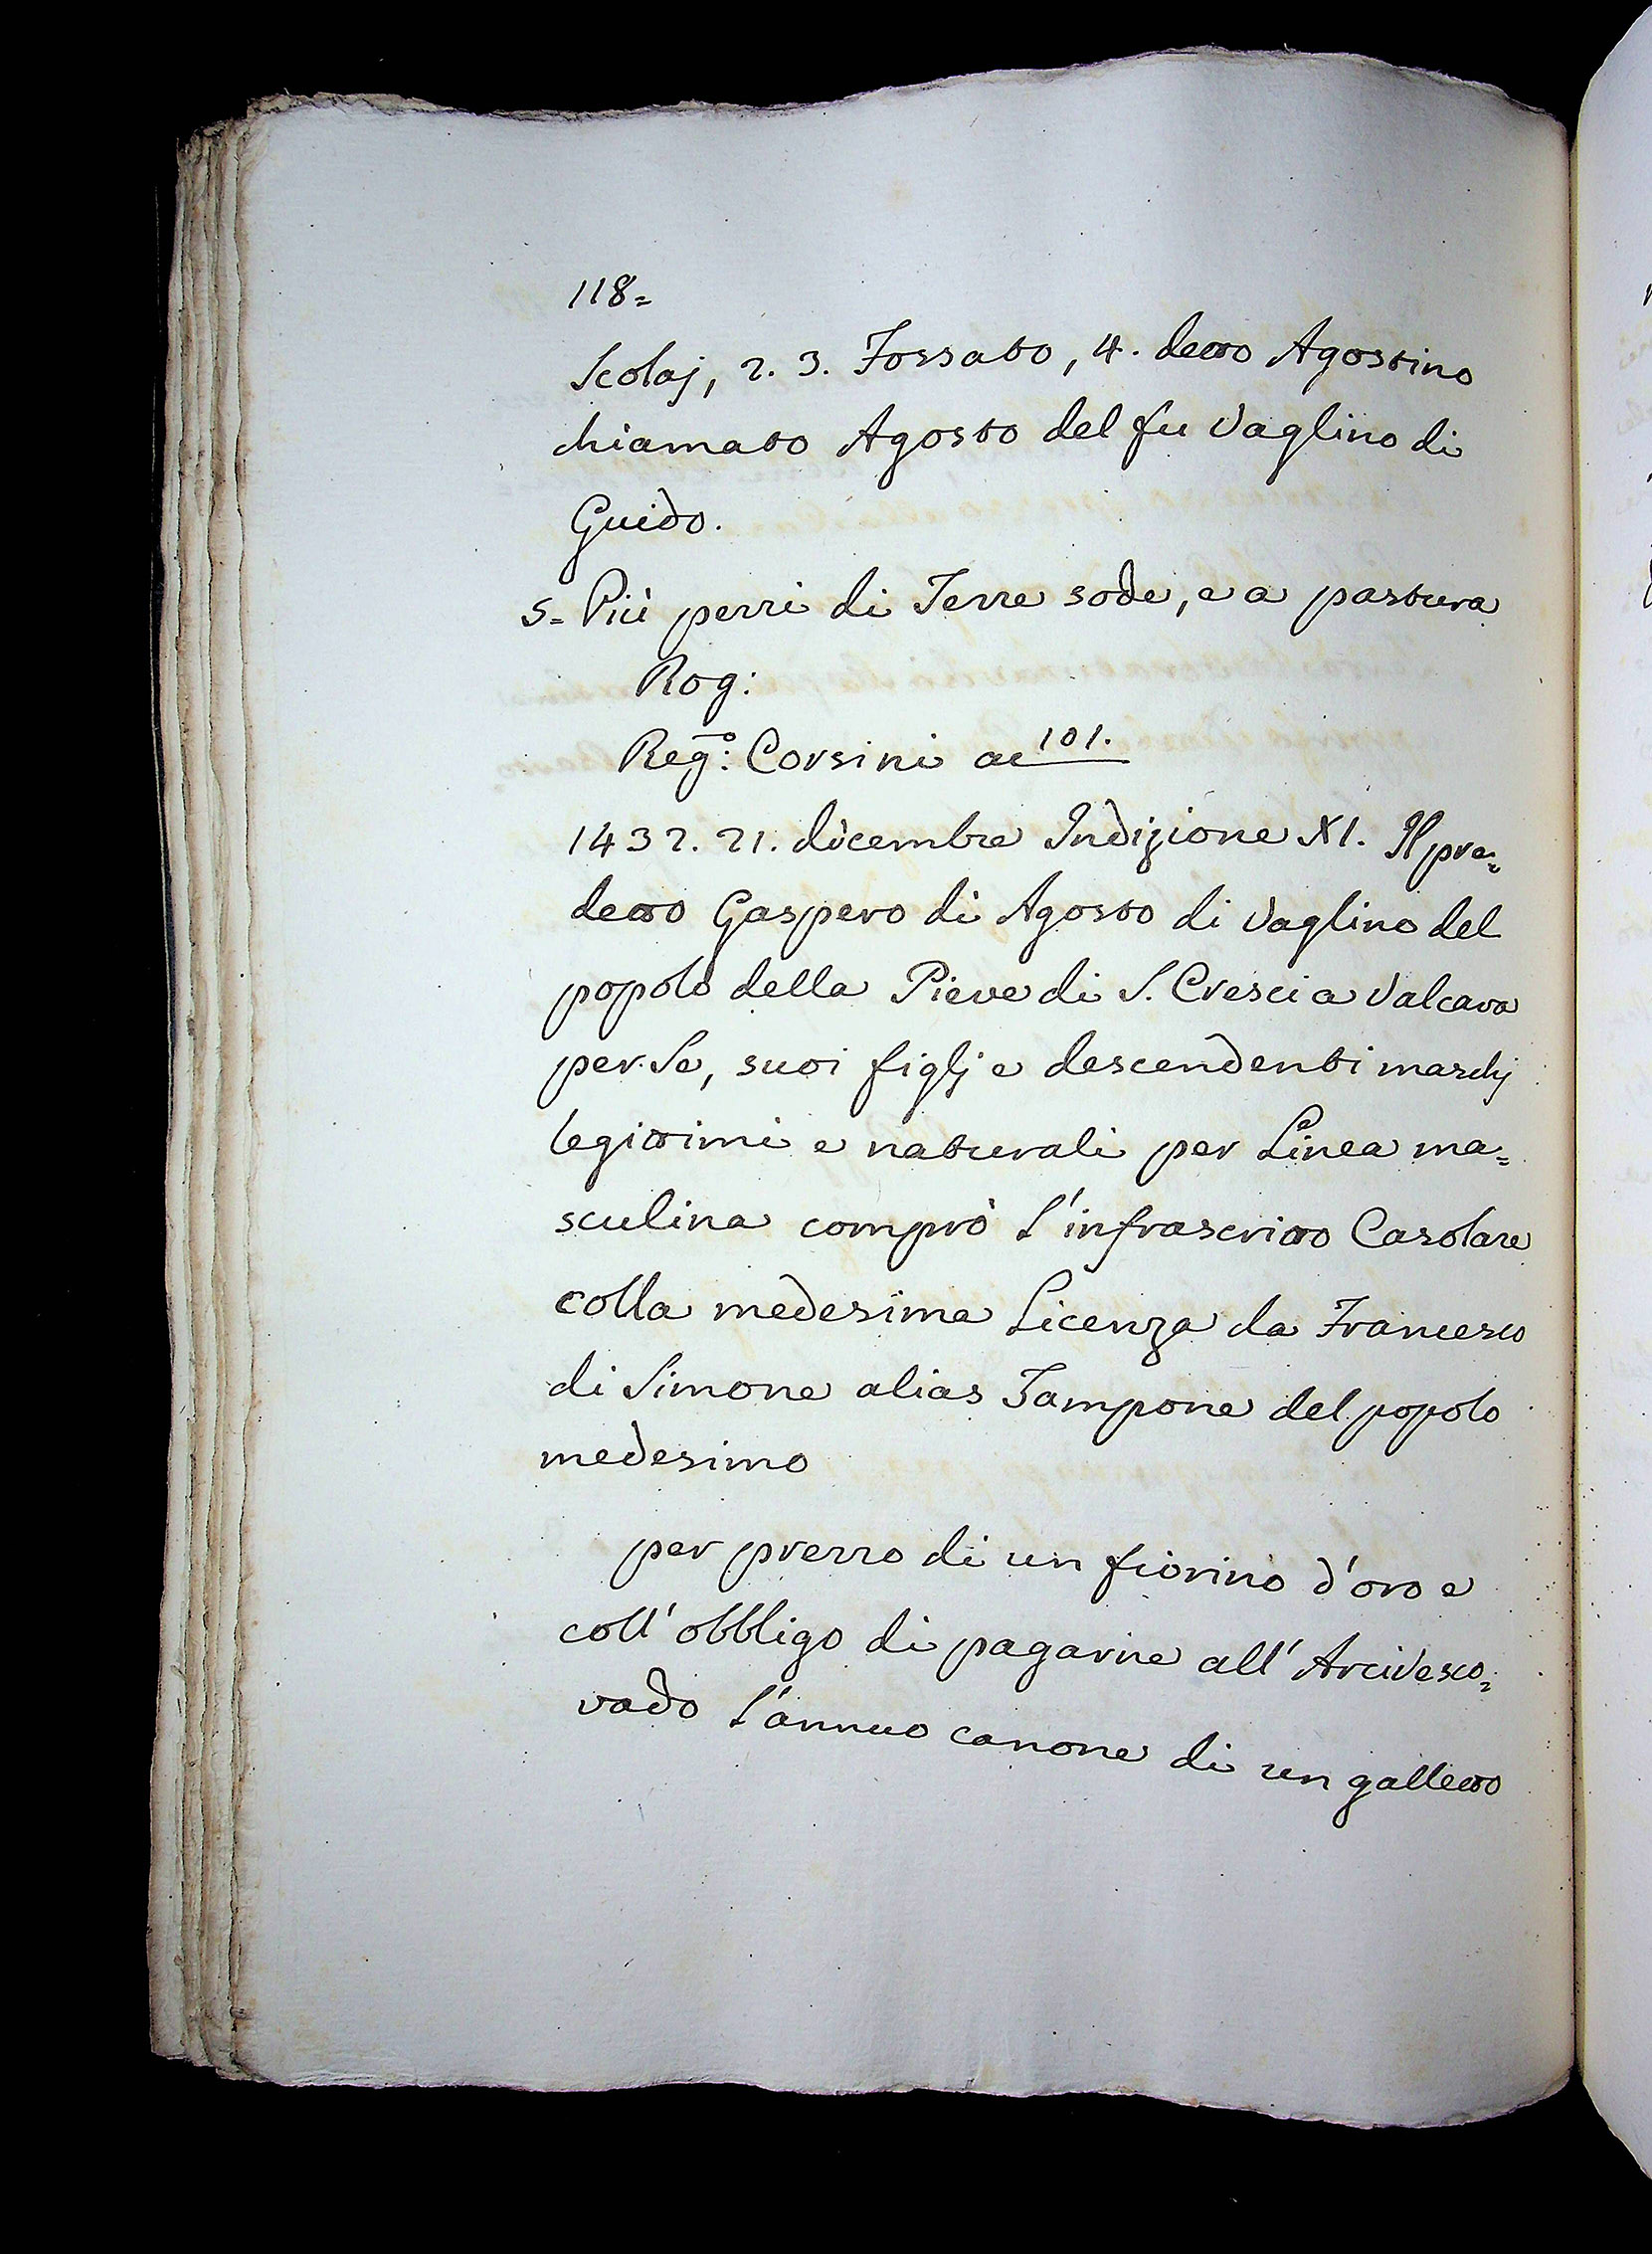 118=
Scolaj, 2. 3. Fossato, 4. detto Agostino
chiamato Agosto del fu Vaglino di
Guido.
5= Più pezzi di Terre sode, e a pastura
Rog:
Rego: Corsini ac 101.
1432. 21. dicembre Indizione XI. Il pre=
detto Gaspero di Agosto di Vaglino del
popolo della Pieve di S. Cresci a Valcava
per Se, suoi figlj e descendenti maschj
legittimi e naturali per Linea ma=
sculina comprò l'infrascritto Casolare
colla medesima Licenza da Francesco
di Simone alias Tampone del popolo
medesimo
per prezzo di un fiorino d'oro e
coll'obbligo di pagarne all'Arcivesco=
vado l'annuo canone di un galletto